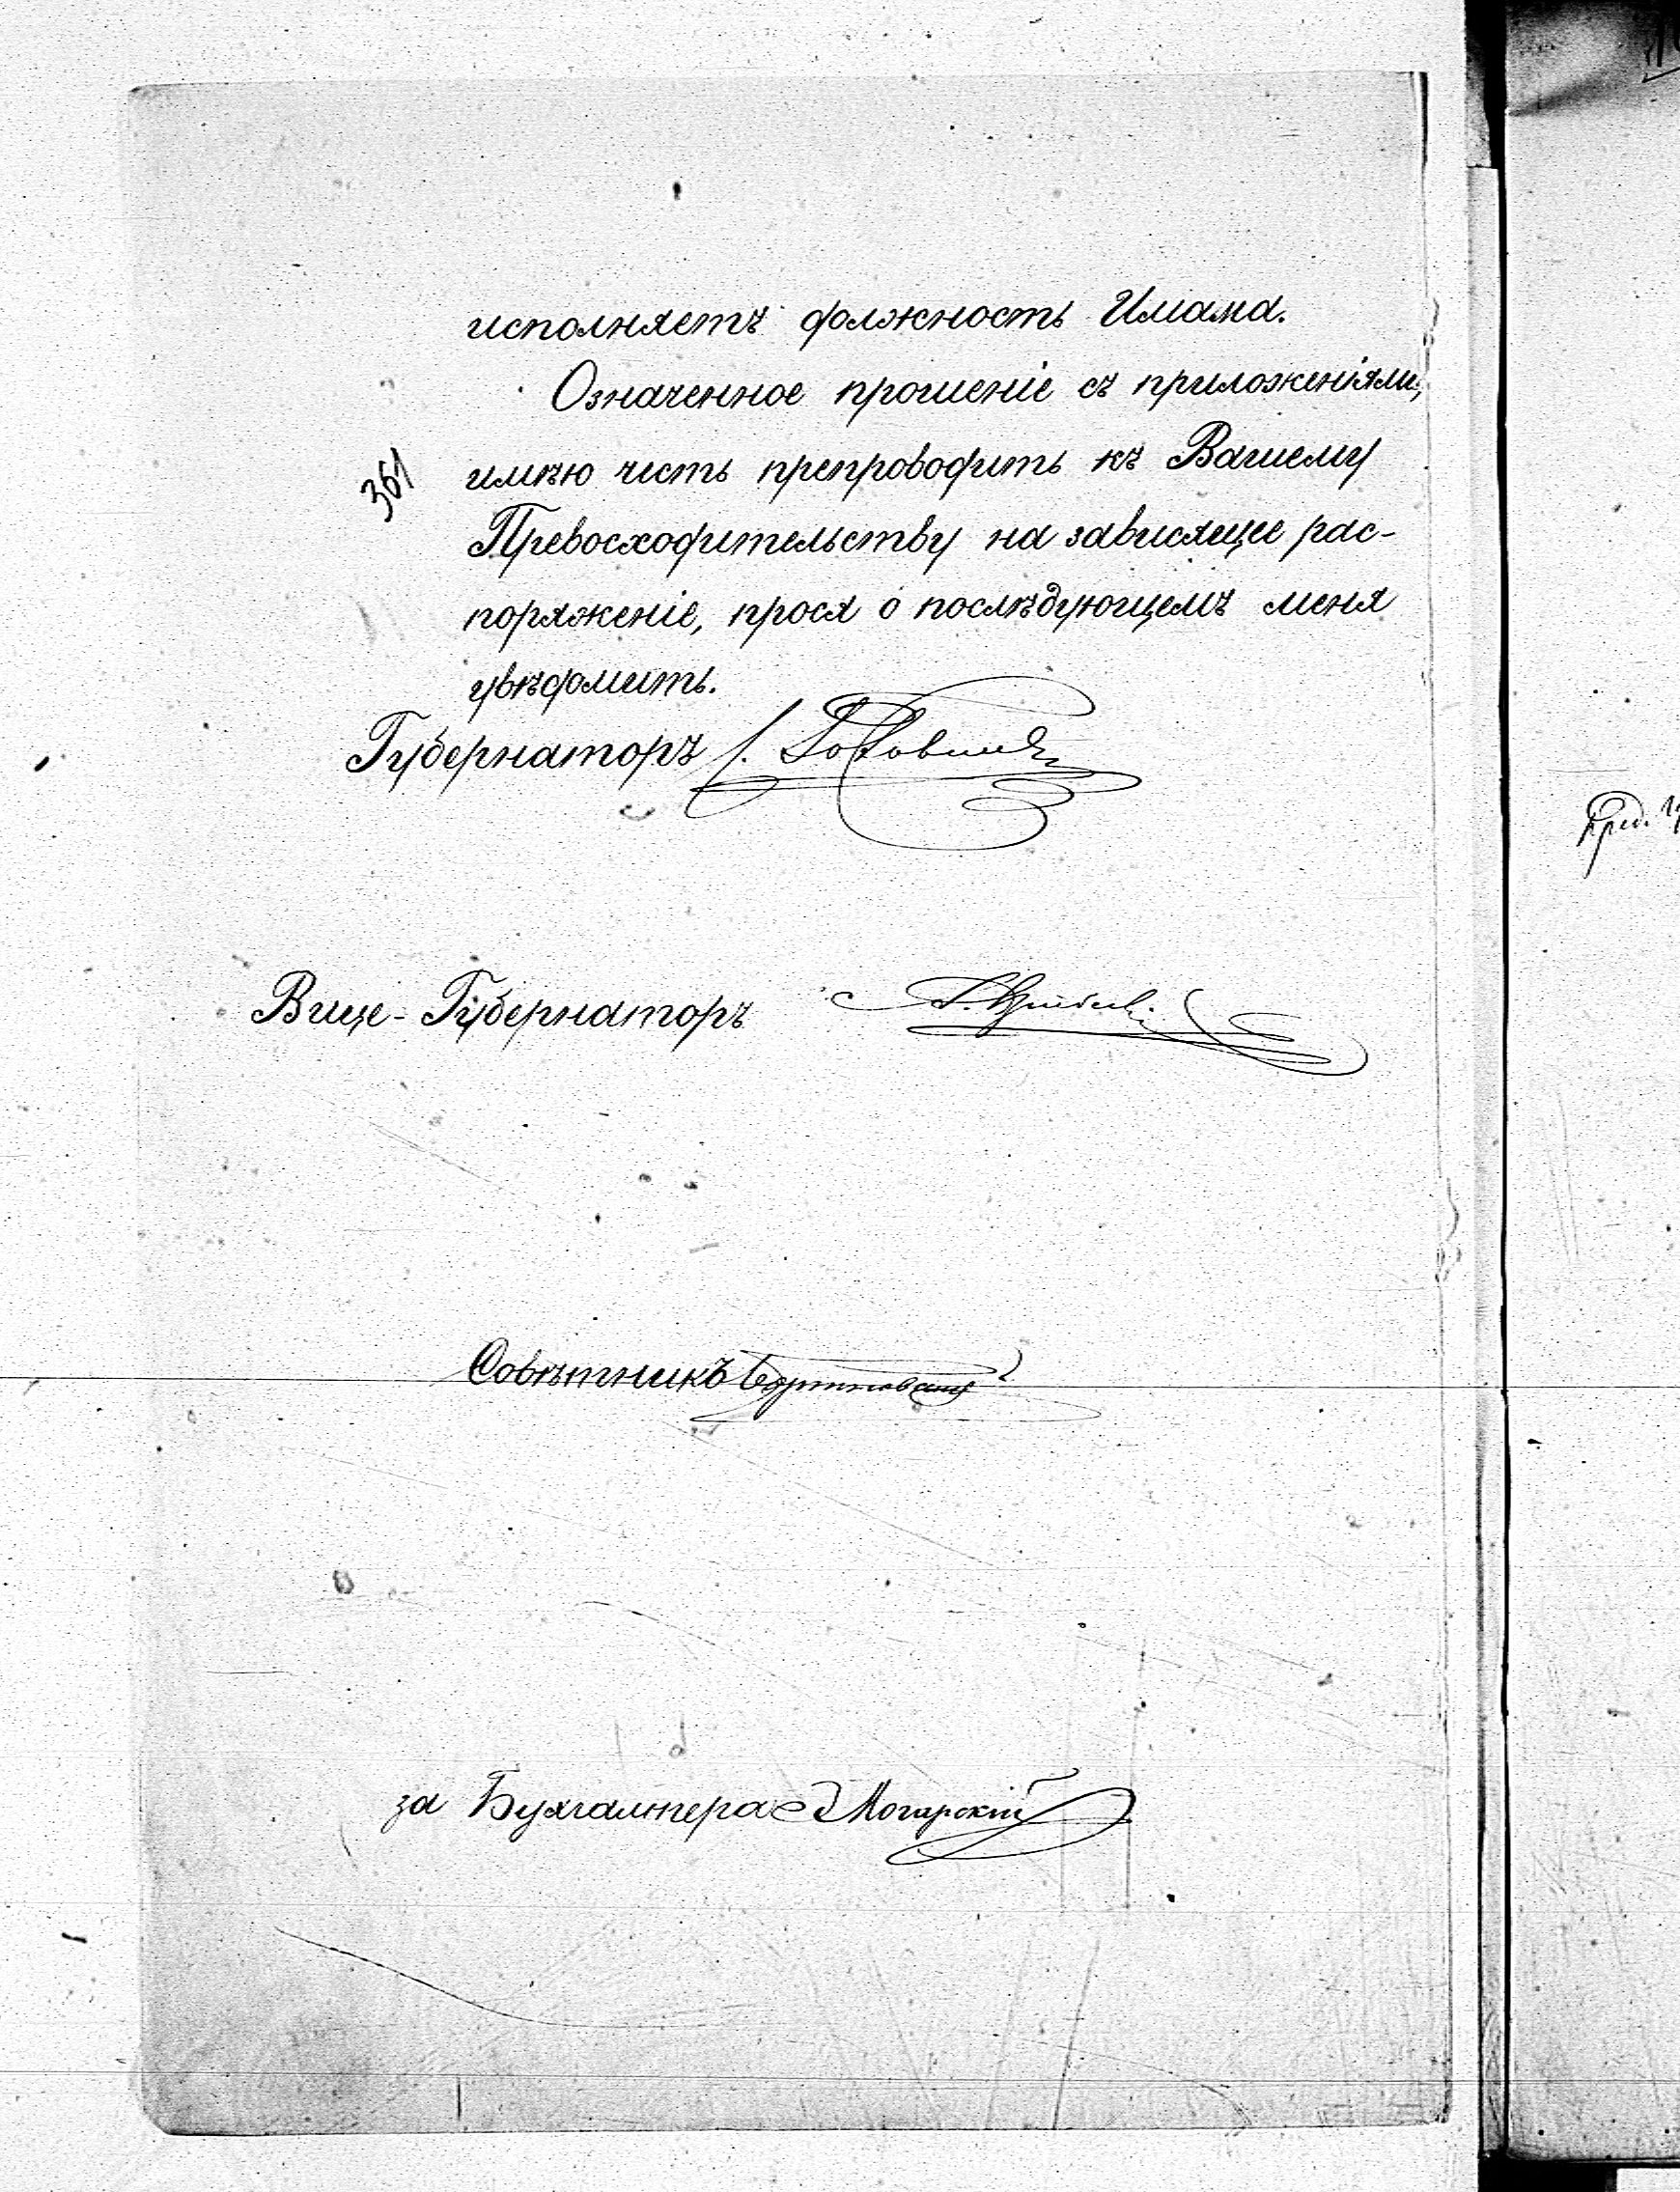 исполняетъ должность Имама.
Означенное прошеніе съ приложеніями,
361
имѣю честь препроводить къ Вашему
Превосходительству на зависящее рас-
поряженіе, прося о послѣдующемъ меня
увѣдомить.
Губернаторъ
Вице-Губернаторъ
Совѣтникъ
за Бухгалтера